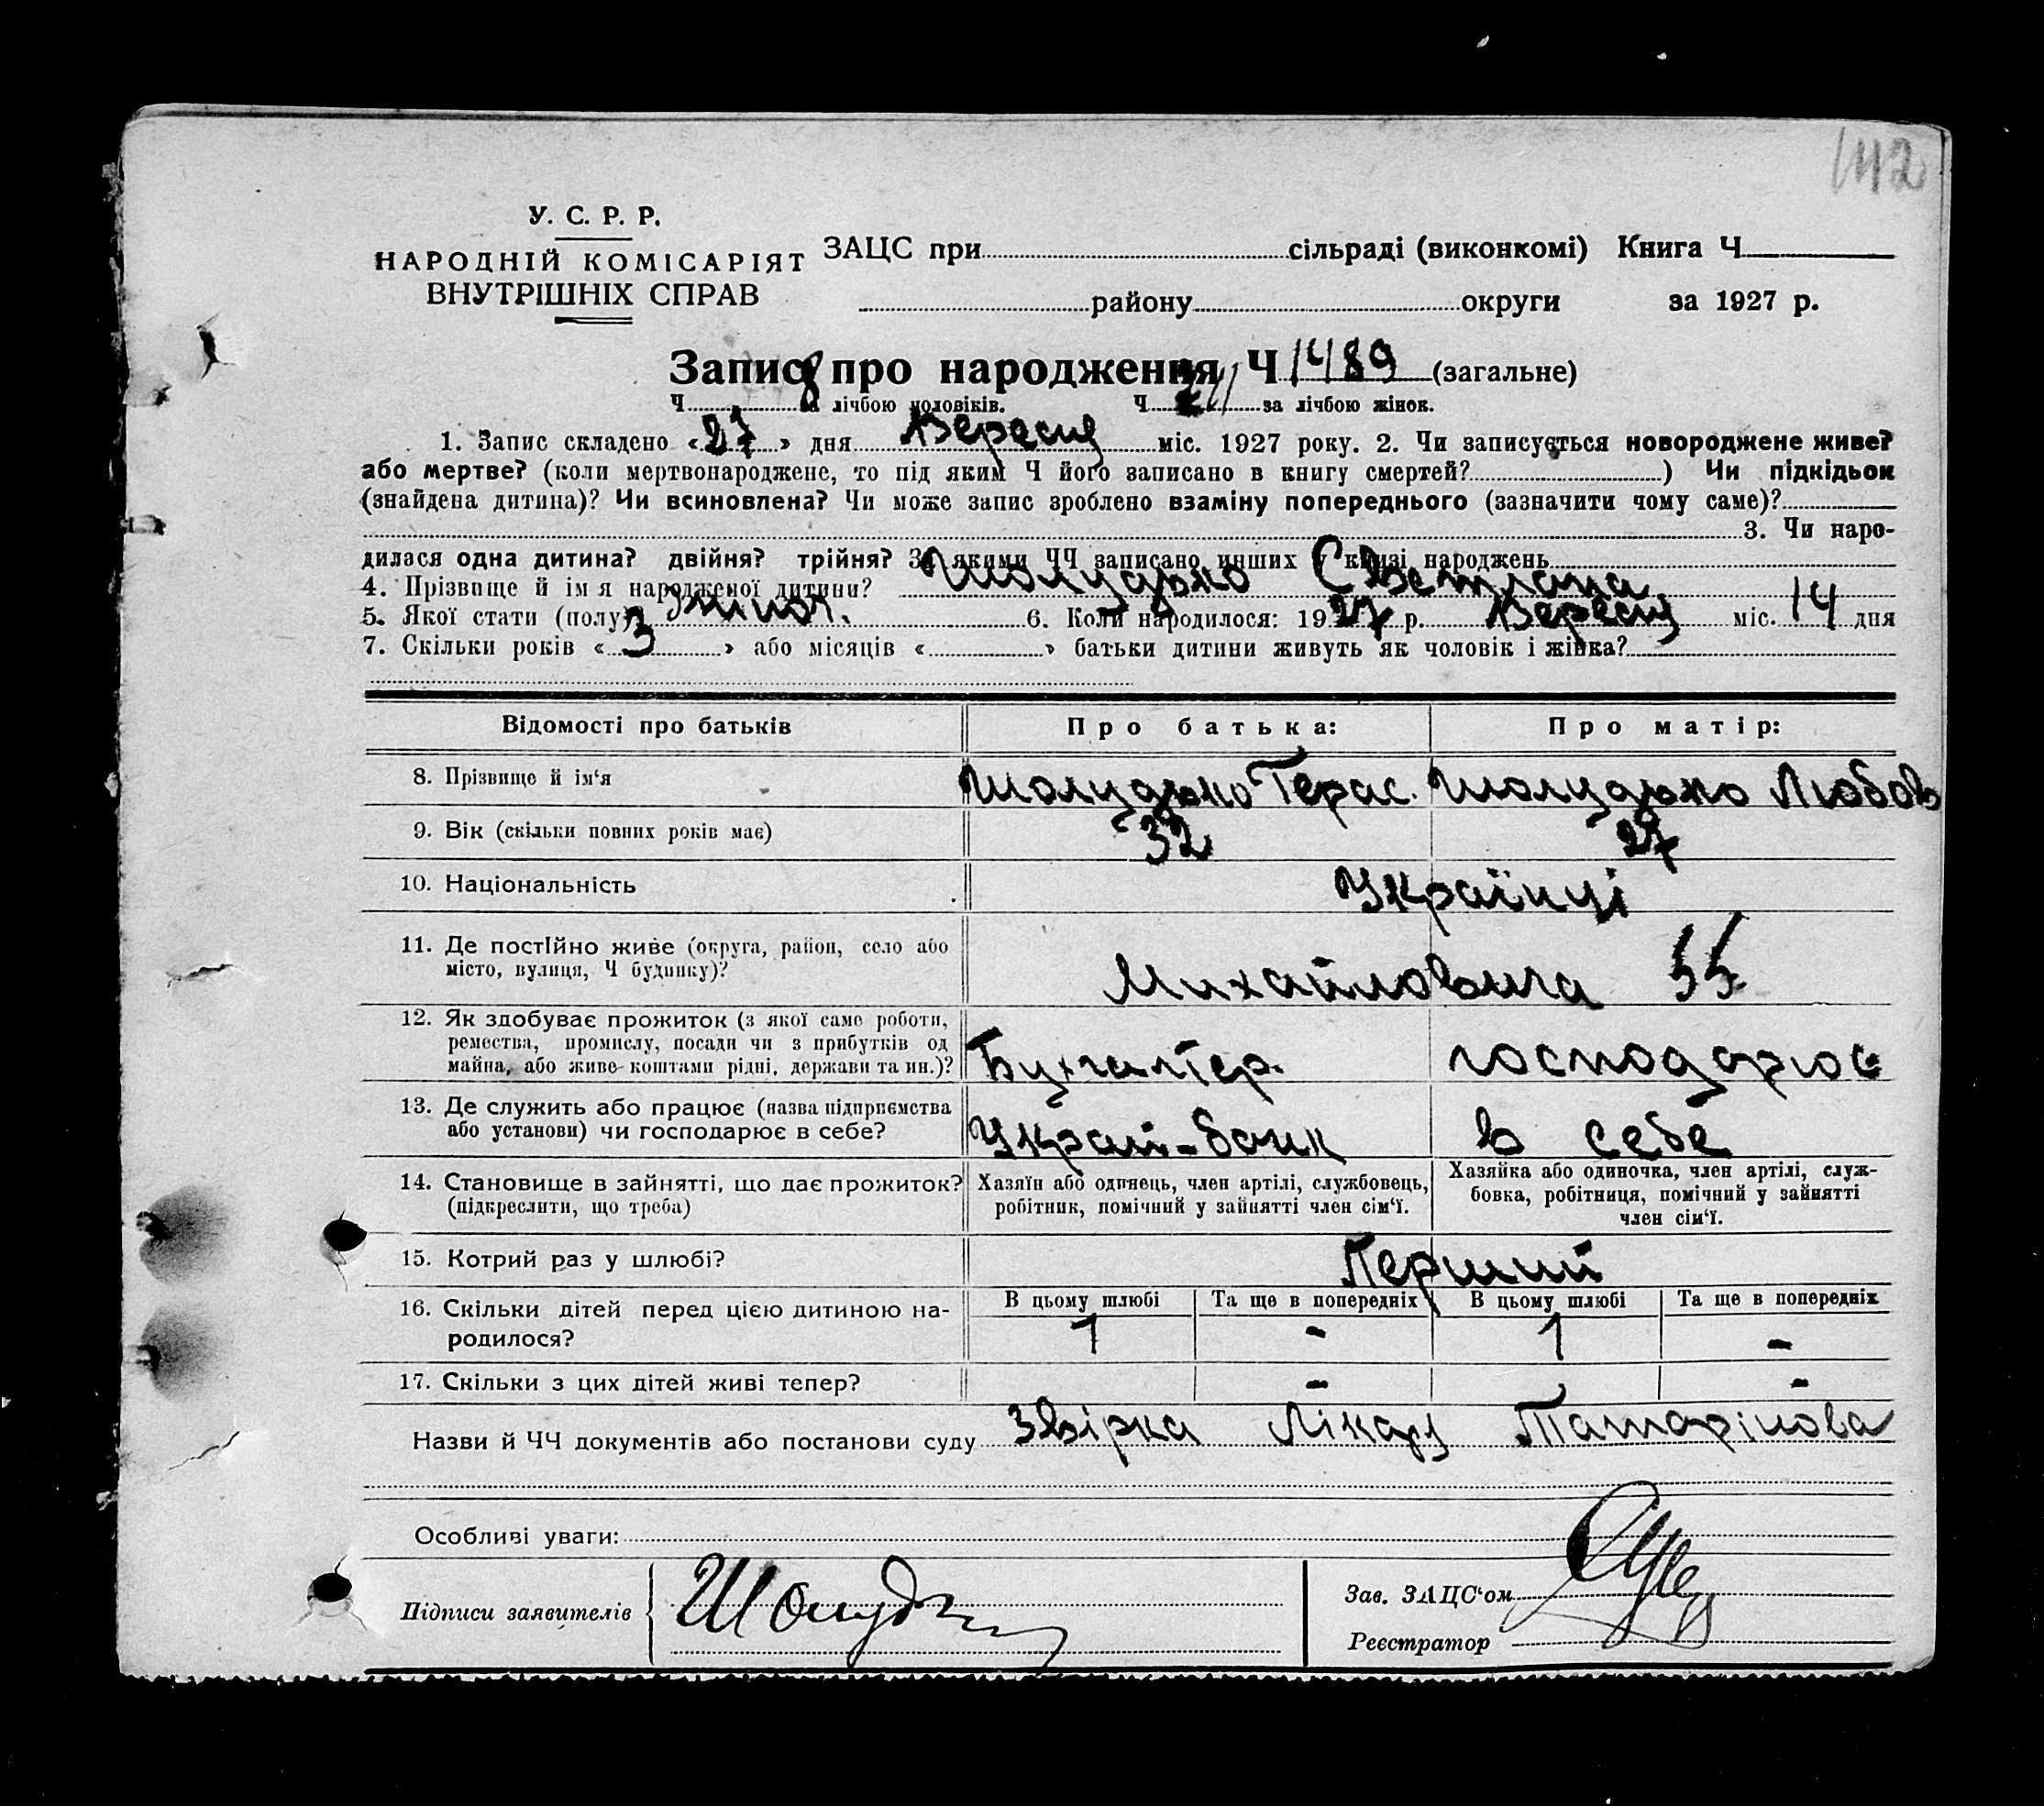 142
У. С. Р. Р.
НАРОДНІЙ КОМІСАРІЯТ
ВНУТРІШНІХ СПРАВ
ЗАЦС при сільраді (виконкомі) Книга Ч
району округи за 1927 р.
Запис про народження Ч 1489 (загальне)
Ч за лічбою чоловіків. Ч за лічбою жінок.
1. Запис складено «27» дня Вересня міс. 1927 року. 2. Чи записується новороджене живе?
або мертве? (коли мертвонароджене, то під яким Ч його записано в книгу смертей? ) Чи підкідьок
(знайдена дитина)? Чи всиновлена? Чи може запис зроблено взаміну попереднього (зазначити чому саме)?
3. Чи наро-
дилася одна дитина? двійня? трійня? За якими ЧЧ записано инших у книзі народжень
4. Прізвище й ім'я народженої дитини? Шолудько Светлана
5. Якої стати (полу) жіноч. 6. Коли народилося: 1927 р. Вересня міс. 14 дня
7. Скільки років «3» або місяців « » батьки дитини живуть як чоловік і жінка?
Відомості про батьків Про батька: Про матір:
8. Прізвище й ім'я Шолудько Герас. Шолудько Любов
9. Вік (скільки повних років має) 32 27
10. Національність Українці
11. Де постійно живе (округа, район, село або
місто, вулиця, Ч будинку)? Михайловича
12. Як здобуває прожиток (з якої саме роботи,
ремества, промислу, посади чи з прибутків од
майна, або живе коштами рідні, держави та ин.)? Бухгалтер. господарює
13. Де служить або працює (назва підприємства
або установи) чи господарює в себе? Україн-банк в себе
14. Становище в зайнятті, що дає прожиток?
(підкреслити, що треба)
Хазяїн або одинець, член артілі, службовець,
робітник, помічний у зайнятті член сім'ї.
Хазяйка або одиночка, член артілі, служ-
бовка, робітниця, помічний у зайнятті
член сім'ї.
15. Котрий раз у шлюбі? Перший
16. Скільки дітей перед цією дитиною на-
родилося?
В цьому шлюбі Та ще в попередніх В цьому шлюбі Та ще в попередніх
1 - 1 -
17. Скільки з цих дітей живі тепер? - -
Назви й ЧЧ документів або постанови суду Звірка Лікаря Татарінова
Особливі уваги:
Підписи заявителів Шолудько
Зав. ЗАЦС'ом
Реєстратор